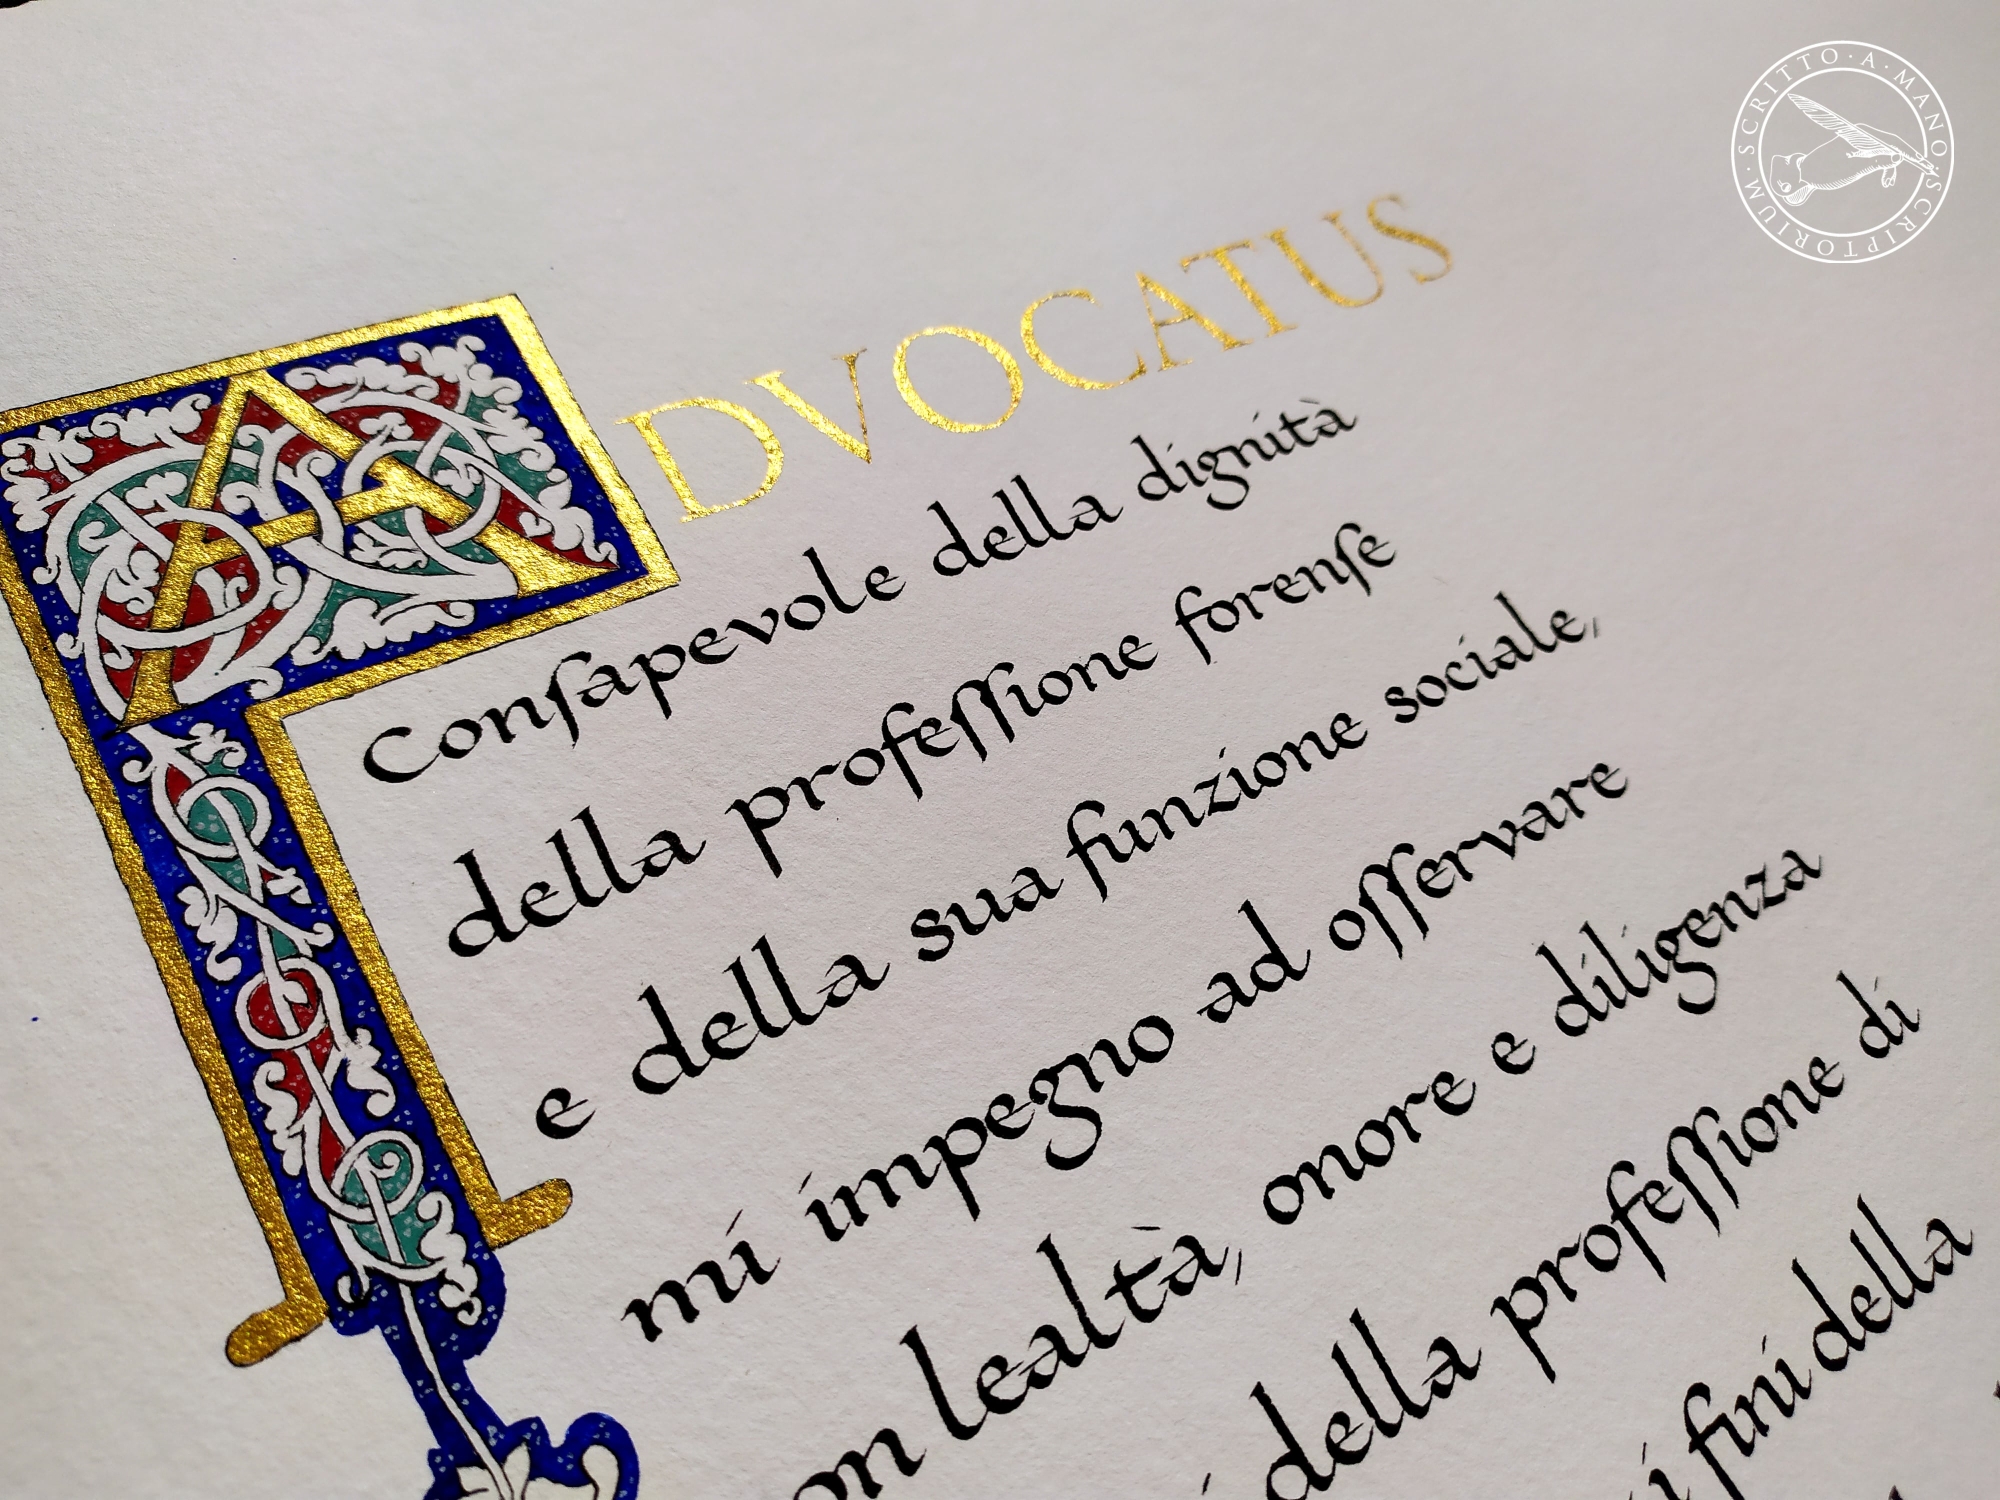 SCRITTO · A · MANO · SCRIPTORIUM ·
ADVOCATUS
Conſapevole della dignità
della profeſſione forenſe
e della sua funzione sociale,
mi impegno ad oſſervare
on lealtà, onore e diligenza
i della profeſſione di
i fini della